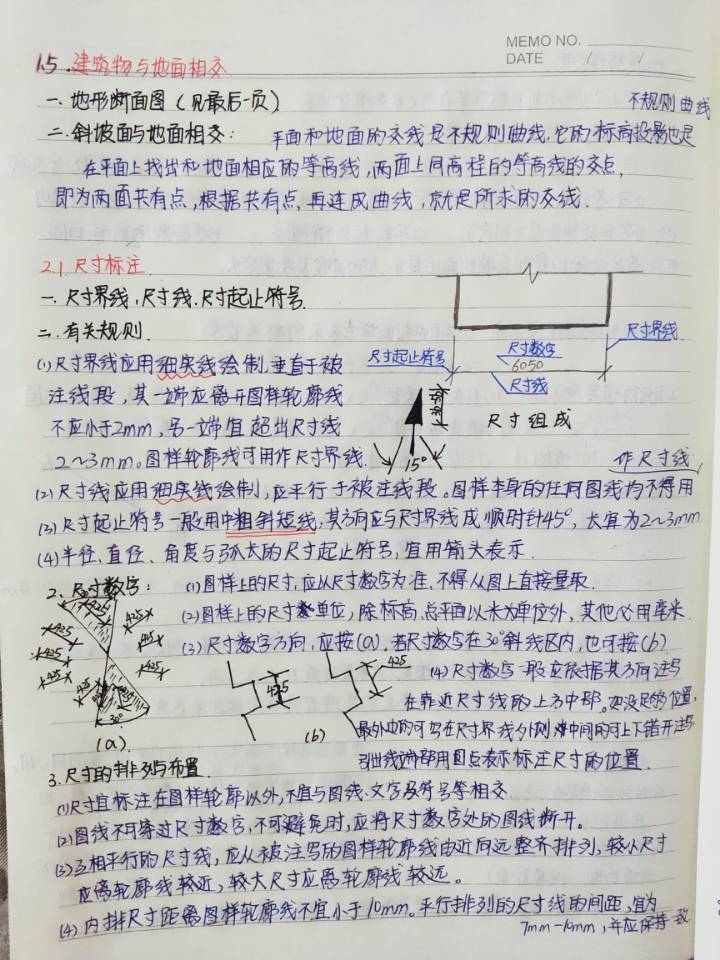 MEMO NO.
DATE / /
1.5.建筑物与地面相交
一.地形断面图(见最后一页)
不规则曲线
二.斜坡面与地面相交: 平面和地面的交线是不规则曲线.它的标高投影也是
在平面上找出和地面相应的等高线,两面上同高程的等高线的交点,
即为两面共有点,根据共有点,再连成曲线,就是所求的交线.
2.1.尺寸标注
一.尺寸界线,尺寸线.尺寸起止符号.
二.有关规则.
尺寸起止符号
尺寸数字
6050
尺寸线
尺寸界线
尺寸组成
15°
(1)尺寸界线应用细实线绘制,垂直于被
注线段,其一端应离开图样轮廓线
不应小于2mm,另一端宜超出尺寸线
2~3mm。图样轮廓线可用作尺寸界线.
作尺寸线
(2)尺寸线应用细实线绘制,应平行于被注线段。图样本身的任何图线均不得用
(3)尺寸起止符号一般用中粗斜短线,其方向应与尺寸界线成顺时针45°,长宜为2~3mm
(4)半径、直径、角度与弧长的尺寸起止符号,宜用箭头表示.
2.尺寸数字: (1)图样上的尺寸,应从尺寸数字为准,不得从图上直接量取.
(2)图样上的尺寸单位,除标高.总平面以米为单位外,其他必用毫米.
(3)尺寸数字方向,应按(a).若尺寸数字在30°斜线区内,也可按(b).
425
425
425
425
425
425
425
30°
(a)
425
425
(b)
(4)尺寸数字一般应依据其方向注写
在靠近尺寸线的上方中部。如没足够位置,
最外边的可写在尺寸界线外侧,中间的可上下错开注写
引出线端部用圆点表示标注尺寸的位置.
3.尺寸的排列与布置.
(1)尺寸宜标注在图样轮廓以外,不宜与图线.文字及符号等相交
(2)图线不可穿过尺寸数字,不可避免时,应将尺寸数字处的图线断开。
(3)互相平行的尺寸线,应从被注写的图样轮廓线由近向远整齐排列,较小尺寸
应离轮廓线较近,较大尺寸应离轮廓线较远。
(4)内排尺寸距离图样轮廓线不宜小于10mm。平行排列的尺寸线的间距,宜为
7mm-10mm,并应保持一致